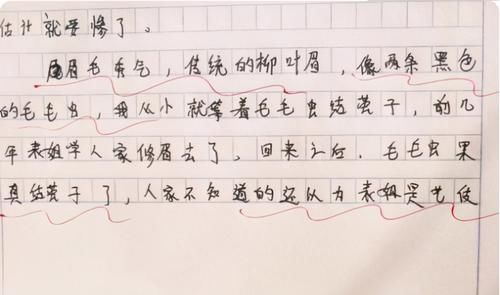 估计就要惨了。
眉毛秀气，传统的柳叶眉，像两条黑色
的毛毛虫，我从小就等着毛毛虫结茧子，前几
年表姐学人家修眉去了，回来之后，毛毛虫果
真结茧子了，人家不知道的还以为表姐是艺伎